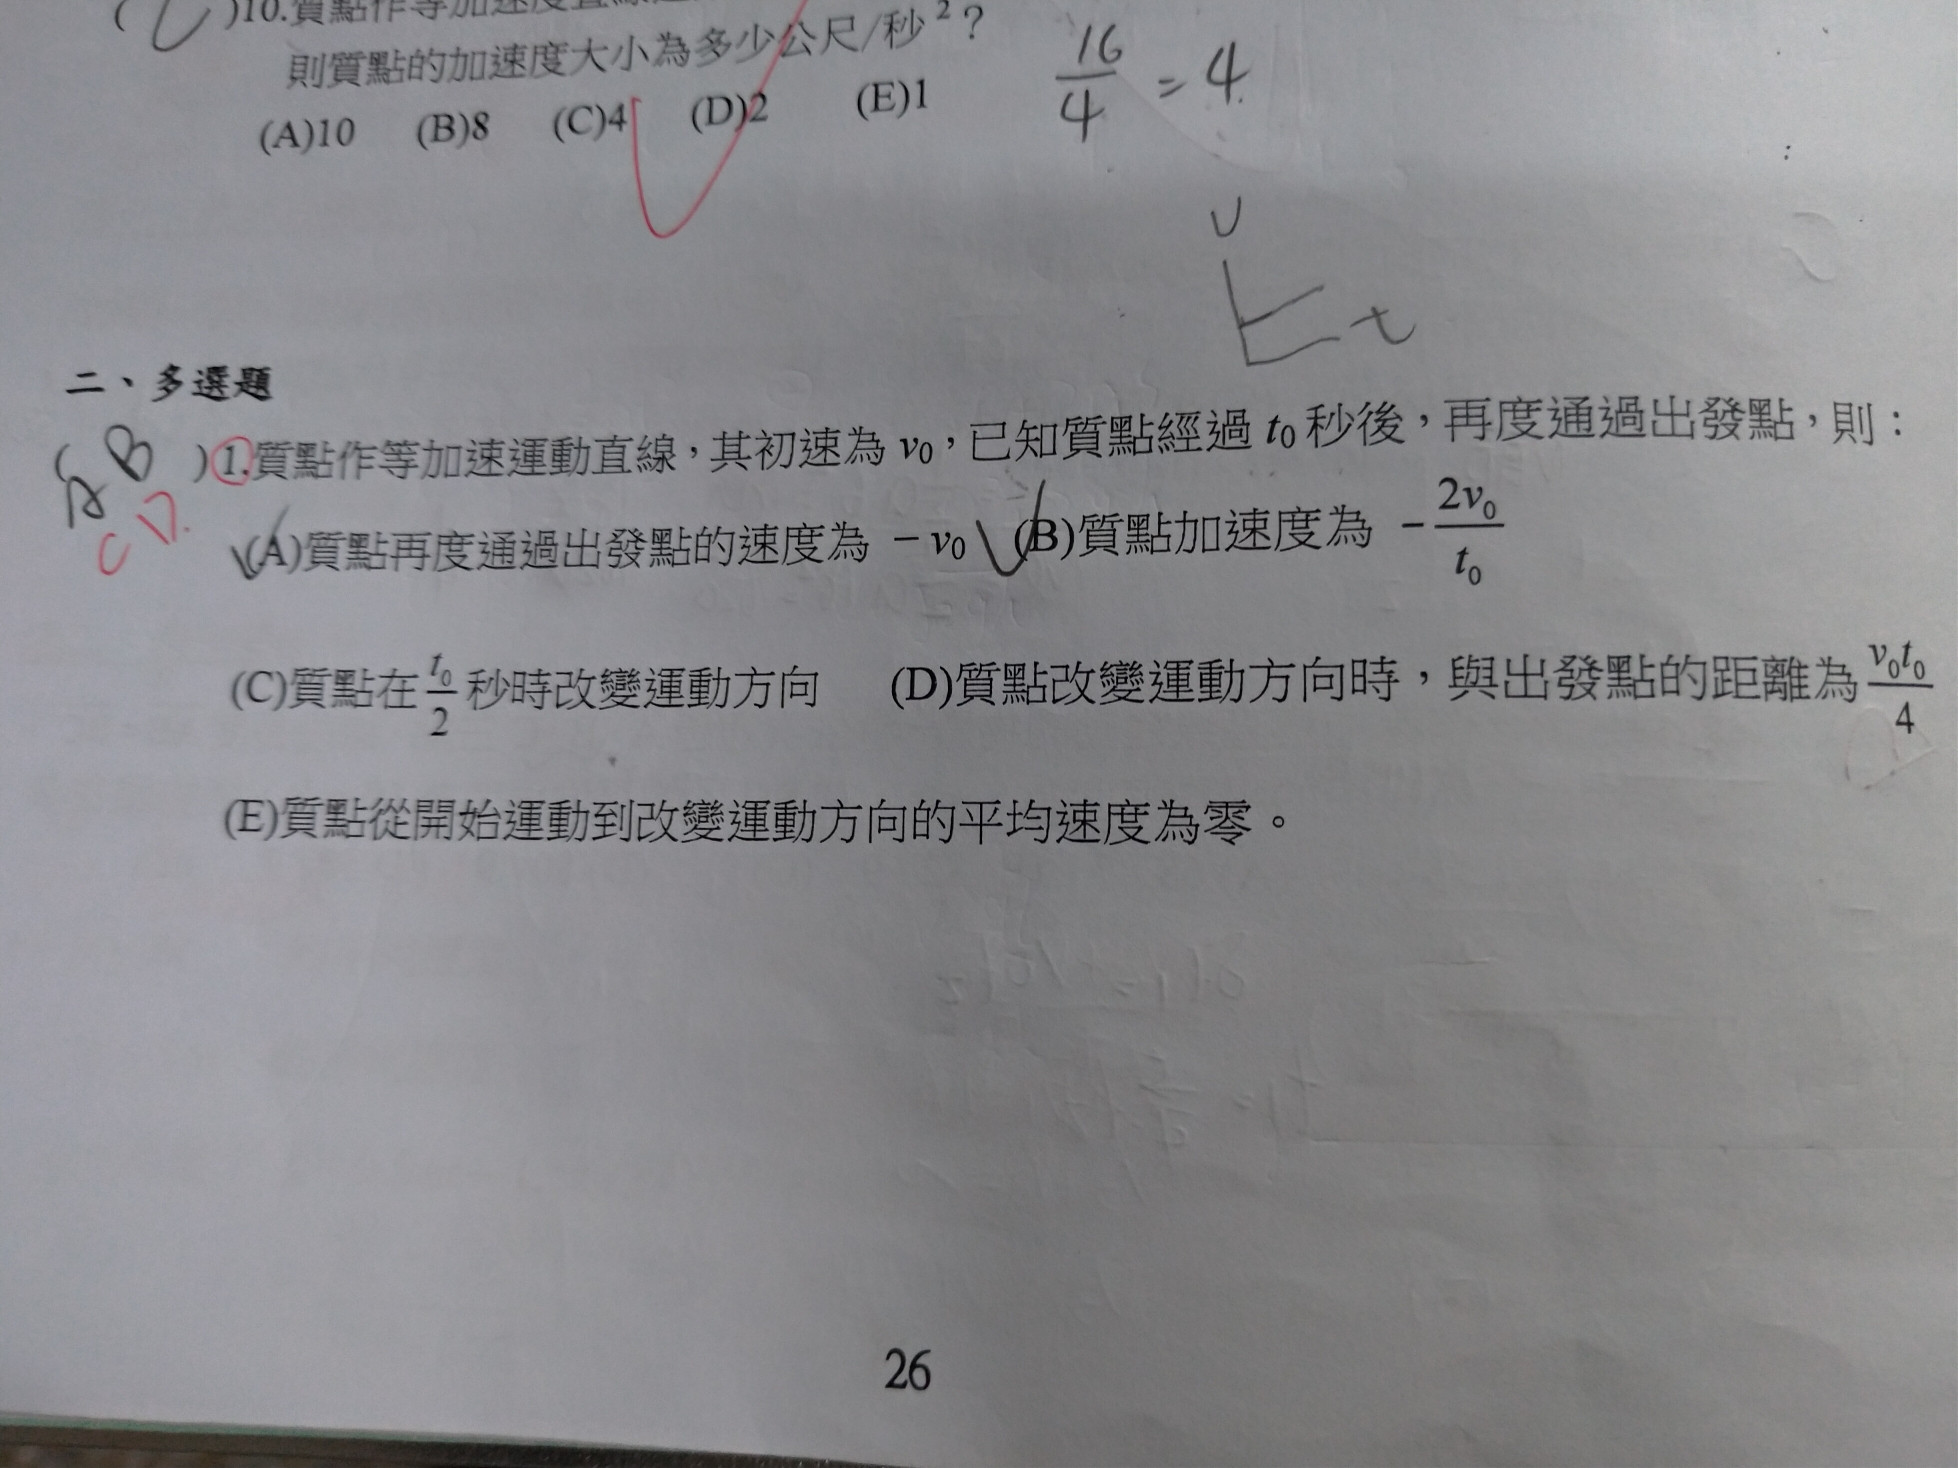 )10.質點作等加速度直線
則質點的加速度大小為多少公尺/秒²？
(A)10 (B)8 (C)4 (D)2 (E)1
16/4 = 4
v
t
二、多選題
(AB CD)1.質點作等加速運動直線，其初速為 v₀，已知質點經過 t₀ 秒後，再度通過出發點，則：
(A)質點再度通過出發點的速度為 －v₀ (B)質點加速度為 －2v₀/t₀
(C)質點在 t₀/2 秒時改變運動方向 (D)質點改變運動方向時，與出發點的距離為 v₀t₀/4
(E)質點從開始運動到改變運動方向的平均速度為零。
26